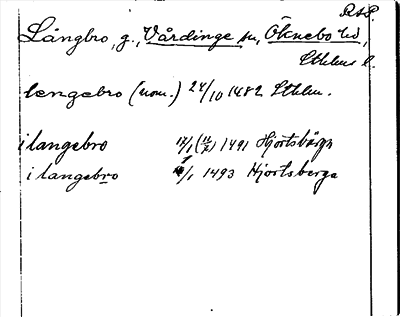 RAP.
Långbro, g., Vårdinge sn, Öknebo hd,
Sthlms l.
lengebro (nom.) 24/10 1482 Sthlm.
i langebro 17/1 (11/2) 1491 Hjortsbärga
i langebro /1 1493 Hjortsberga